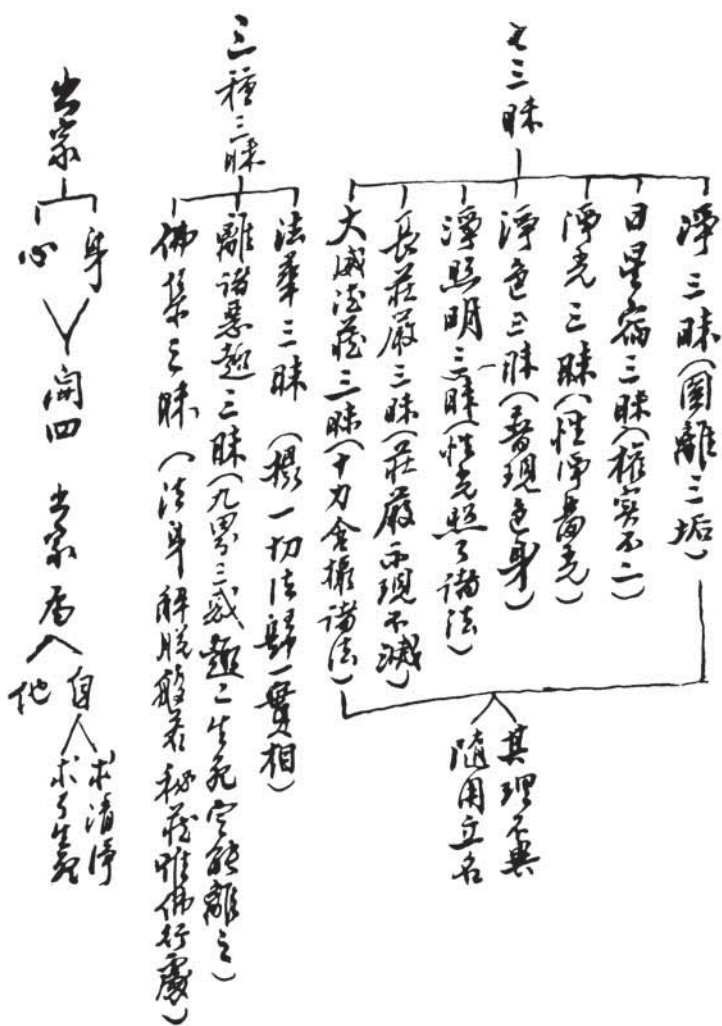 七三昧
淨三昧(圓離三垢)
日星宿三昧(權实不二)
淨光三昧(性淨發光)
淨色三昧(普現色身)
淨照明三昧(性光照了諸法)
長莊嚴三昧(莊嚴示現不滅)
大威德藏三昧(十力含攝諸法)
其理不異
隨用立名
三種三昧
法華三昧(攝一切法歸一實相)
離諸惡趣三昧(九界三惑趣二生死定能離之)
佛集三昧(法身解脫般若秘藏唯佛行處)
出家
身
心
開四
出家為
自
他
求清淨
求了生死